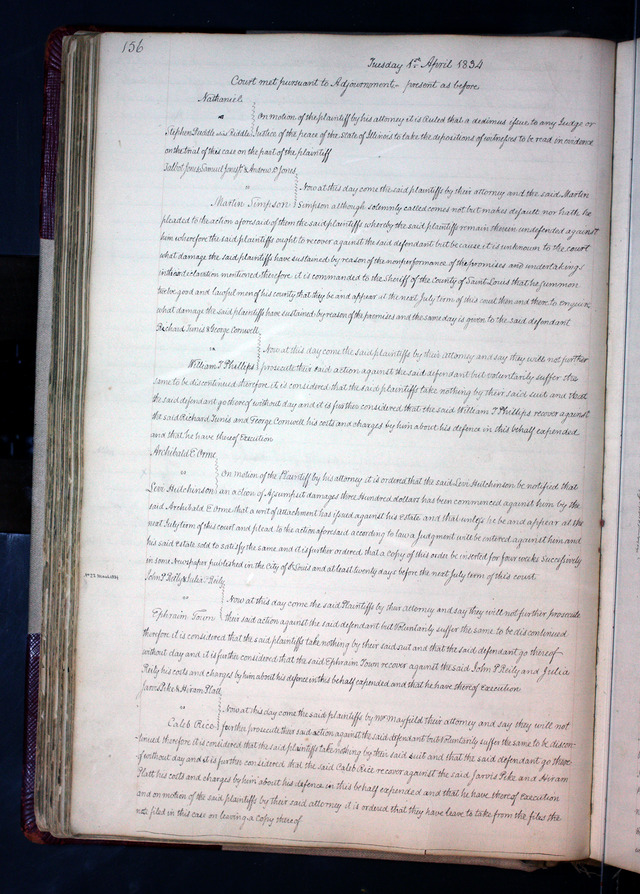 156
Tuesday 1st April 1834
Court met pursuant to Adjournment present as before
Nathaniel
vs On motion of the plaintiff by his attorney it is Ruled that a dedimus issue to any Judge or
Justice of the peace of the State of Illinois to take the depositions of witnesses to be read in evidence
on the trial of this case on the part of the plaintiff
Talbot Jones Samuel Jones & Andrew D Jones
vs Now at this day come the said plaintiffs by their attorney and the said Martin
Martin Simpson Simpson although solemnly called comes not but makes default nor hath he
pleaded to the action aforesaid of them the said plaintiffs whereby the said plaintiffs remain therein undefended against
him wherefore the said plaintiffs ought to recover against the said defendant but because it is unknown to the court
what damage the said plaintiffs have sustained by reason of the nonperformance of the promises and undertakings
in their declaration mentioned therefore it is commanded to the Sheriff of the County of Saint Louis that he summon
twelve good and lawful men of his county that they be and appear at the next July term of this court then and there to enquire
what damage the said plaintiffs have sustained by reason of the premises and the same day is given to the said defendant
Richard Tunis & George Cornwell
vs Now at this day come the said plaintiffs by their Attorney and say they will not further
William T Phillips prosecute their said action against the said defendant but voluntarily suffer the
same to be discontinued therefore it is considered that the said plaintiffs take nothing by their said suit and that
the said defendant go thereof without day and it is further considered that the said William T Phillips recover against
the said Richard Tunis and George Cornwell his costs and charges by him about his defence in this behalf expended
and that he have thereof Execution
Archibald E. Orme
vs On motion of the Plaintiff by his attorney it is ordered that the said Levi Hutchinson be notified that
Levi Hutchinson an action of Assumpsit damages three Hundred dollars has been commenced against him by the
said Archibald E Orme that a writ of attachment has issued against his Estate and that unless he be and appear at the
next July term of this court and plead to the action aforesaid according to law a Judgment will be entered against him and
his said estate sold to satisfy the same and it is further ordered that a copy of this order be inserted for four weeks Successively
in some Newspaper published in the City of St Louis and at least twenty days before the next July term of this court
John P Reily & Julia Reily
vs Now at this day come the said Plaintiffs by their attorney and say they will not further prosecute
Ephraim Town their said action against the said defendant but Voluntarily suffer the same to be discontinued
therefore it is considered that the said plaintiffs take nothing by their said suit and that the said defendant go thereof
without day and it is further considered that the said Ephraim Town recover against the said John P Reily and Julia
Reily his costs and charges by him about his defence in this behalf expended and that he have thereof Execution
Jarvis Peke & Hiram Platt
vs Now at this day come the said plaintiffs by Mr Mayfield their attorney and say they will not
Caleb Rice further prosecute their said action against the said defendant but Voluntarily suffer the same to be discon-
tinued therefore it is considered that the said plaintiffs take nothing by their said suit and that the said defendant go there
of without day and it is further considered that the said Caleb Rice recover against the said Jarvis Peke and Hiram
Platt his costs and charges by him about his defence in this behalf expended and that he have thereof execution
and on motion of the said plaintiffs by their said attorney it is ordered that they have leave to take from the files the
note filed in this case on leaving a Copy thereof